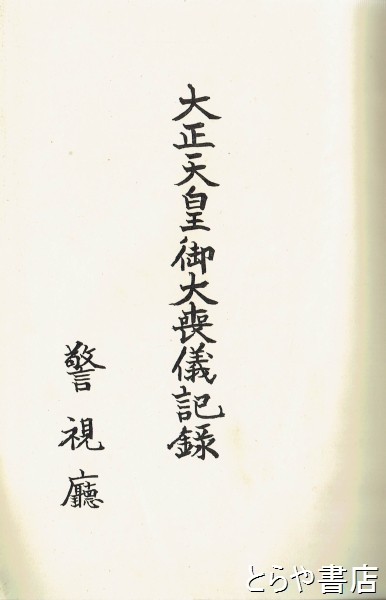 大正天皇御大喪儀記録
警視廳
とらや書店